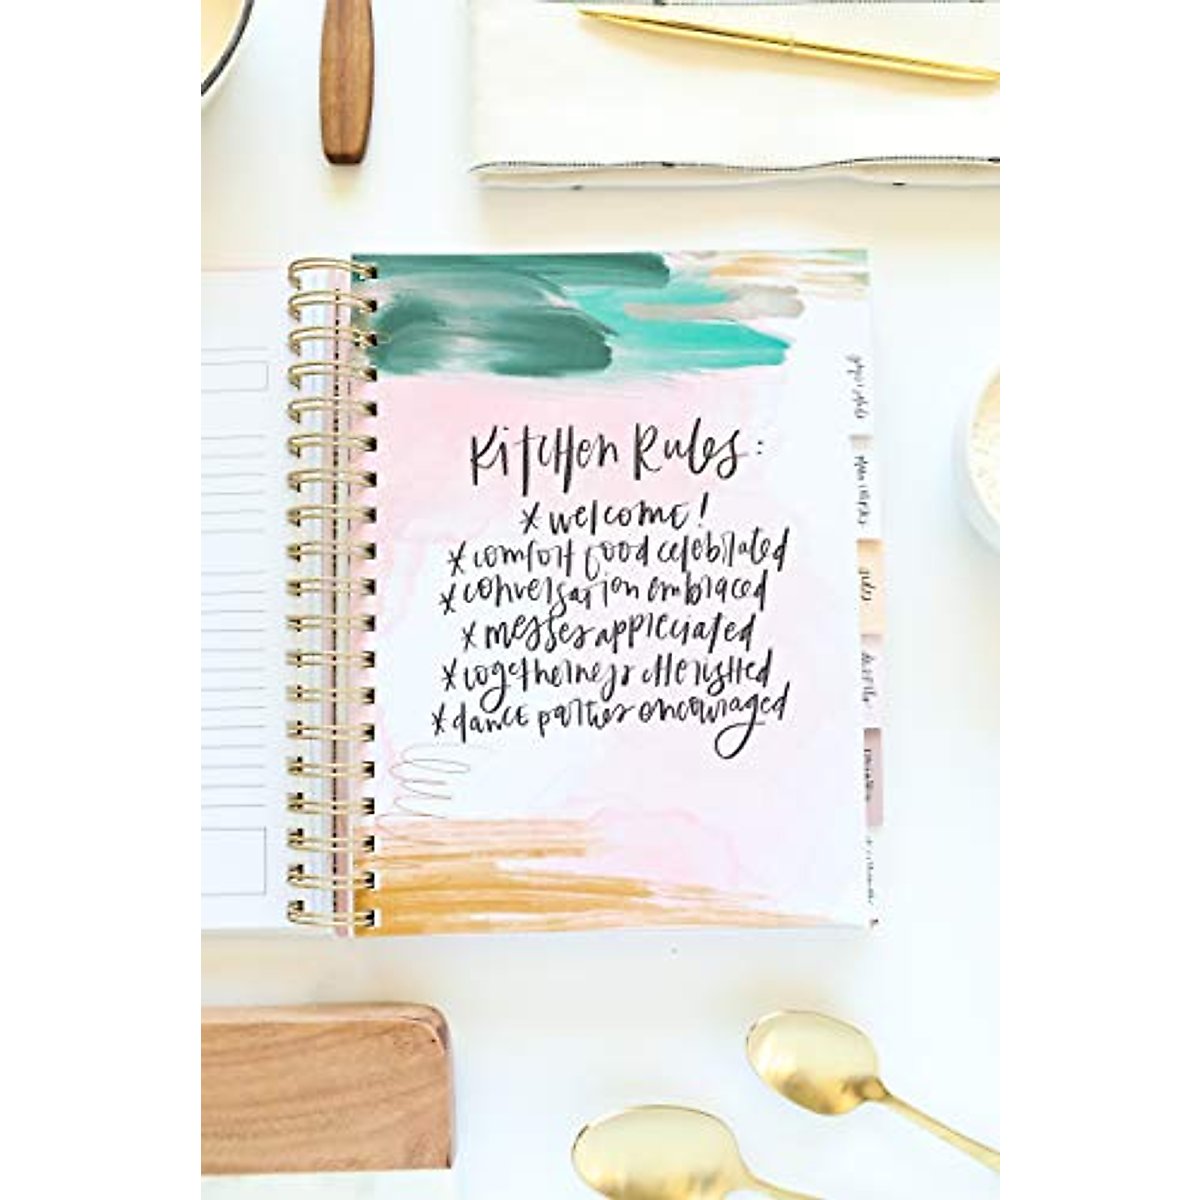 Kitchen Rules:
* welcome!
* comfort food celebrated
* conversation embraced
* messes appreciated
* togetherness cherished
* dance parties encouraged
sides